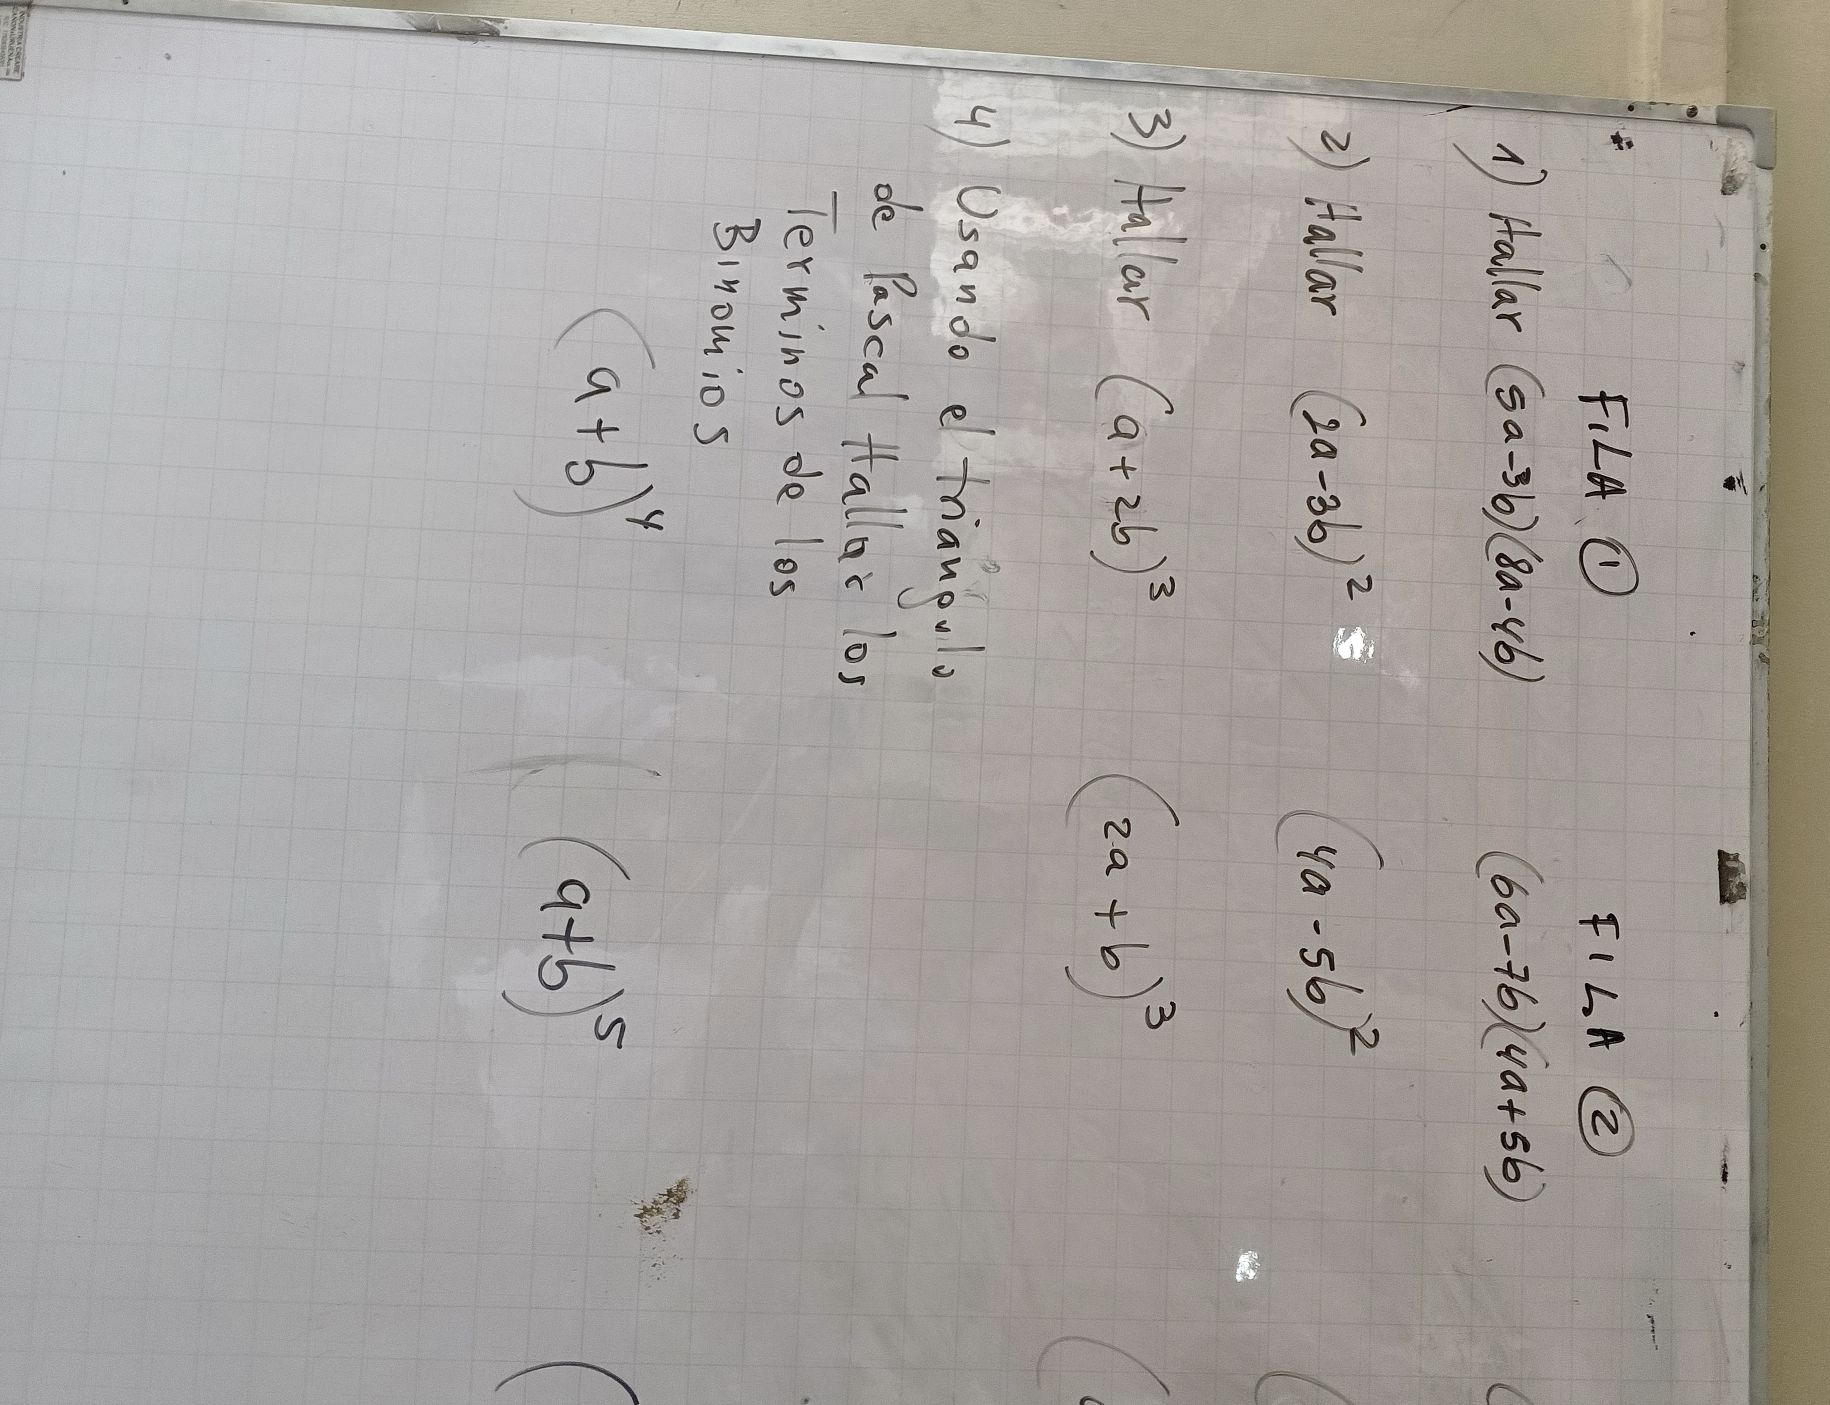 FILA ① FILA ②
1) Hallar (5a-3b)(8a-4b) (6a-7b)(4a+5b)
2) Hallar (2a-3b)² (4a-5b)²
3) Hallar (a+2b)³ (2a+b)³
4) Usando el triangulo
de Pascal Hallar los
Terminos de los
Binomios
(a+b)⁴ (a+b)⁵